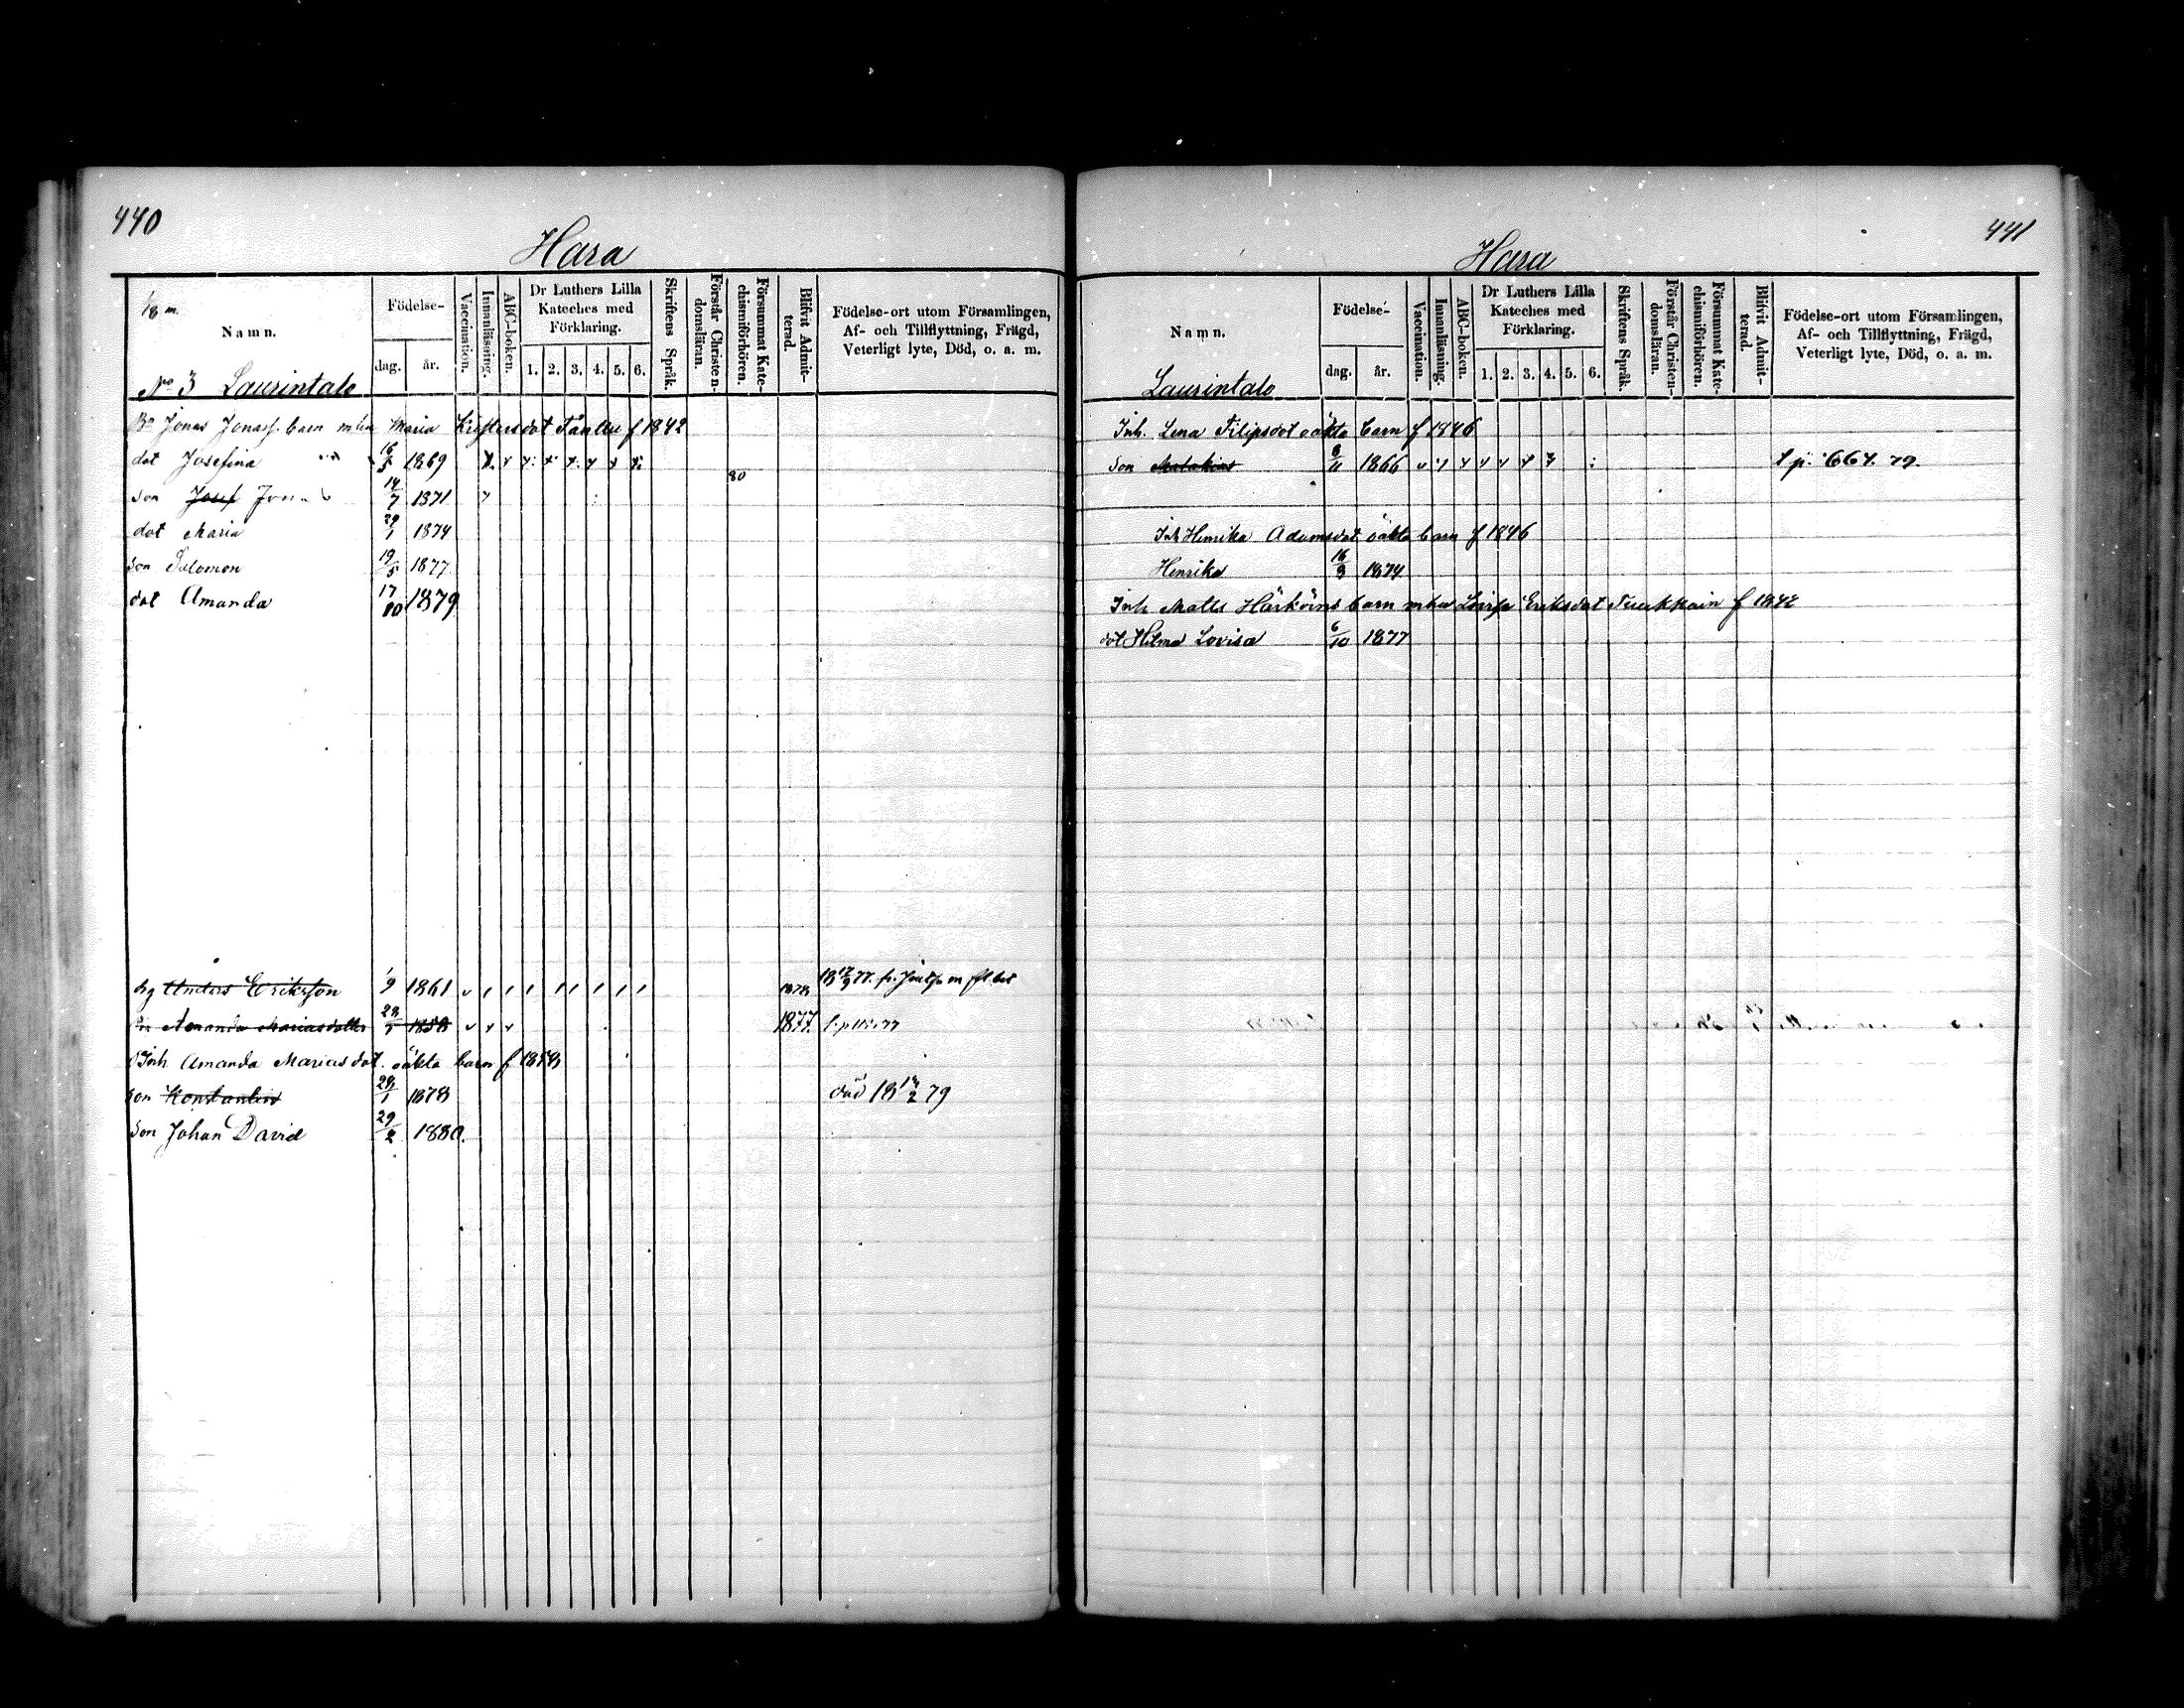 440
Hara
Namn.
Födelse-
dag.
år.
Vaccination.
Innanläsning.
ABC-boken.
Dr Luthers Lilla
Kateches med
Förklaring.
1. 2. 3. 4. 5. 6.
Skriftens Språk.
Förstår Christen-
domsläran.
Försummat Kate-
chismiförhören.
Blifvit Admit-
terad.
Födelse-ort utom Församlingen,
Af- och Tillflyttning, Frägd,
Veterligt lyte, Död, o. a. m.
No 3 Laurintalo
Jonas barn Maria f 1842
dot Josefina 16/5 1869
80
son Josef 14/7 1871
dot Maria 29/1 1874
son Salomon 19/5 1877
dot Amanda 17/10 1879
Anders Eriksson 1/9 1861 1878
Amanda Mariasdotter 1858 1877
Inh Amanda Mariasdot. oäkta barn f 1858
son Konstantin 28/1 1878 död 79
son Johan David 29/2 1880.
441
Hara
Namn.
Födelse-
dag.
år.
Vaccination.
Innanläsning.
ABC-boken.
Dr Luthers Lilla
Kateches med
Förklaring.
1. 2. 3. 4. 5. 6.
Skriftens Språk.
Förstår Christen-
domsläran.
Försummat Kate-
chismiförhören.
Blifvit Admit-
terad.
Födelse-ort utom Församlingen,
Af- och Tillflyttning, Frägd,
Veterligt lyte, Död, o. a. m.
Laurintalo
Inh. Lena Filipsdot oäkta barn f 1846
son Malakias 8/11 1866 664. 79.
Inh Henrika Adamsdot oäkta barn f 1846
Henrika 16/9 1874
Inh Matts barn Eriksdot f 1842
dot Hilma Lovisa 6/10 1877